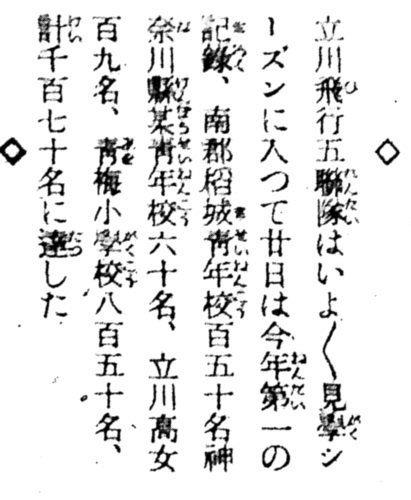 ◇
立川飛行五聯隊はいよ〳〵見學シ
ーズンに入つて廿日は今年第一の
記錄、南郡稻城靑年校百五十名神
奈川縣某靑年校六十名、立川高女
百九名、靑梅小學校八百五十名、
計千百七十名に達した
◇